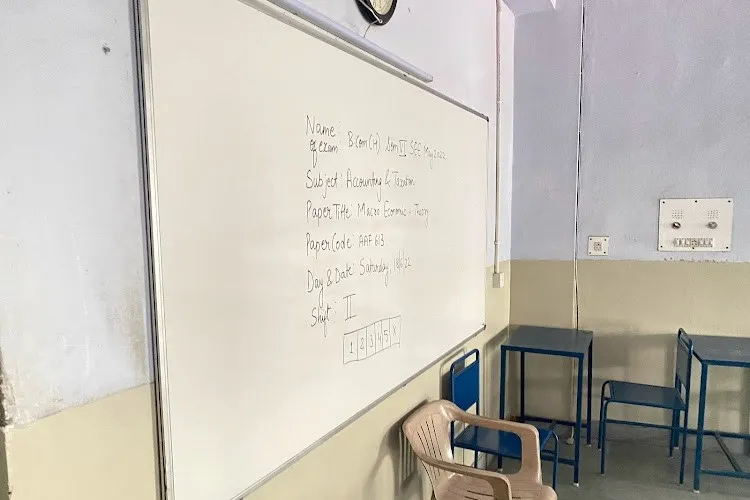 Name of exam: B.Com(H) Sem VI SEE May 2022
Subject: Accounting & Taxation
Paper Title: Macro Economic - Theory
Paper Code: AAF 613
Day & Date: Saturday,
Shift: II
1 2 3 4 5 X